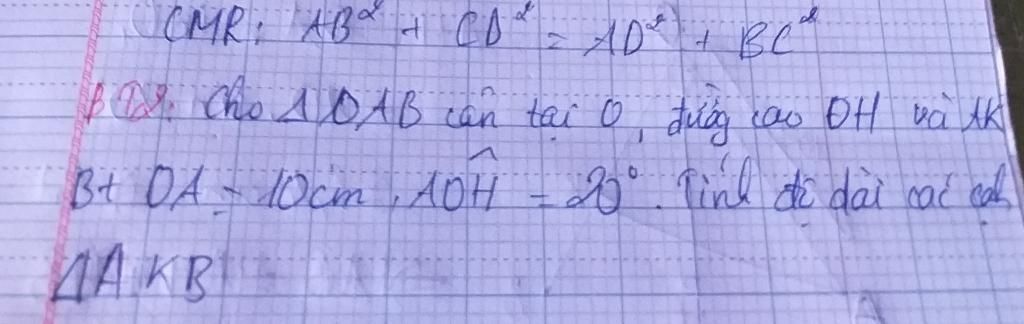 CMR: AB² + CD² = AD² + BC²
BT9: Cho ΔOAB cân tại O, đường cao OH và AK
Bt OA = 10cm, AÔH = 20°. Tính độ dài các cạnh
ΔAKB